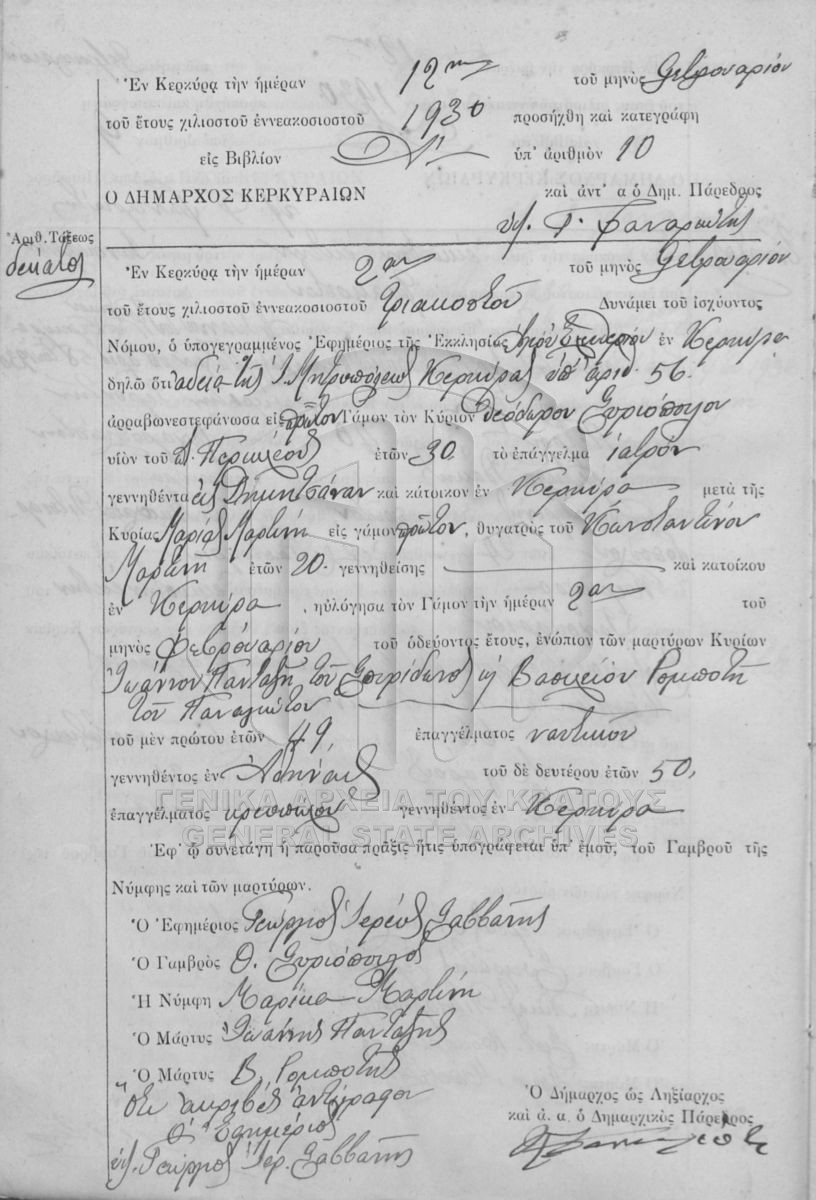 Ἐν Κερκύρᾳ τὴν ἡμέραν 12ην τοῦ μηνὸς Φεβρουαρίου
τοῦ ἔτους χιλιοστοῦ ἐννεακοσιοστοῦ 1930 προσήχθη καὶ κατεγράφη
εἰς Βιβλίον ὑπ' ἀριθμὸν 10
Ο ΔΗΜΑΡΧΟΣ ΚΕΡΚΥΡΑΙΩΝ καὶ ἀντ' α ὁ Δημ. Πάρεδρος
Ἀριθ. Τάξεως
δεκάτη
Ἐν Κερκύρᾳ τὴν ἡμέραν 2αν τοῦ μηνὸς Φεβρουαρίου
τοῦ ἔτους χιλιοστοῦ ἐννεακοσιοστοῦ τριακοστοῦ Δυνάμει τοῦ ἰσχύοντος
Νόμου, ὁ ὑπογεγραμμένος Ἐφημέριος τῆς Ἐκκλησίας ἐν Κερκύρᾳ
δηλῶ ὅτι ἀδείᾳ τῆς Ἱ. Μητροπόλεως Κερκύρας ὑπ' ἀριθ. 56.
ἀρραβωνεστεφάνωσα εἰς πρῶτον Γάμον τὸν Κύριον Θεόδωρον Συριόπουλον
υἱὸν τοῦ Περικλέους ἐτῶν 30 τὸ ἐπάγγελμα ἰατρὸν
γεννηθέντα εἰς Δημητσάναν καὶ κάτοικον ἐν Κερκύρᾳ μετὰ τῆς
Κυρίας Μαρίας Μαρτίνη εἰς γάμον πρῶτον, θυγατρὸς τοῦ Κωνσταντίνου
Μαρτίνη ἐτῶν 20. γεννηθείσης καὶ κατοίκου
ἐν Κερκύρᾳ, ηὐλόγησα τὸν Γάμον τὴν ἡμέραν 2αν τοῦ
μηνὸς Φεβρουαρίου τοῦ ὁδεύοντος ἔτους, ἐνώπιον τῶν μαρτύρων Κυρίων
Ἰωάννου Πανταζῆ τοῦ Σπυρίδωνος ἡ Βασιλείου Ρομποτῆ
τοῦ Παναγιώτου
τοῦ μὲν πρώτου ἐτῶν 49 ἐπαγγέλματος ναυτικοῦ
γεννηθέντος ἐν τοῦ δὲ δευτέρου ἐτῶν 50,
ἐπαγγέλματος κρεοπώλου γεννηθέντος ἐν Κερκύρᾳ
ΓΕΝΙΚΑ ΑΡΧΕΙΑ ΤΟΥ ΚΡΑΤΟΥΣ
GENERAL STATE ARCHIVES
Ἐφ' ᾧ συνετάγη ἡ παροῦσα πρᾶξις ἥτις ὑπογράφεται ὑπ' ἐμοῦ, τοῦ Γαμβροῦ τῆς
Νύμφης καὶ τῶν μαρτύρων.
Ὁ Ἐφημέριος Γεώργιος Ἱερεὺς Σαββάνης
Ὁ Γαμβρὸς Θ. Συριόπουλος
Ἡ Νύμφη Μαρίκα Μαρτίνη
Ὁ Μάρτυς Ἰωάννης Πανταζῆς
Ὁ Μάρτυς Β. Ρομποτῆς
Ὅτι ἀκριβὲς ἀντίγραφον
Ὁ Ἐφημέριος
Γεώργιος Ἱερ. Σαββάνης
Ὁ Δήμαρχος ὡς Ληξίαρχος
καὶ ἀ. α. ὁ Δημαρχικὸς Πάρεδρος